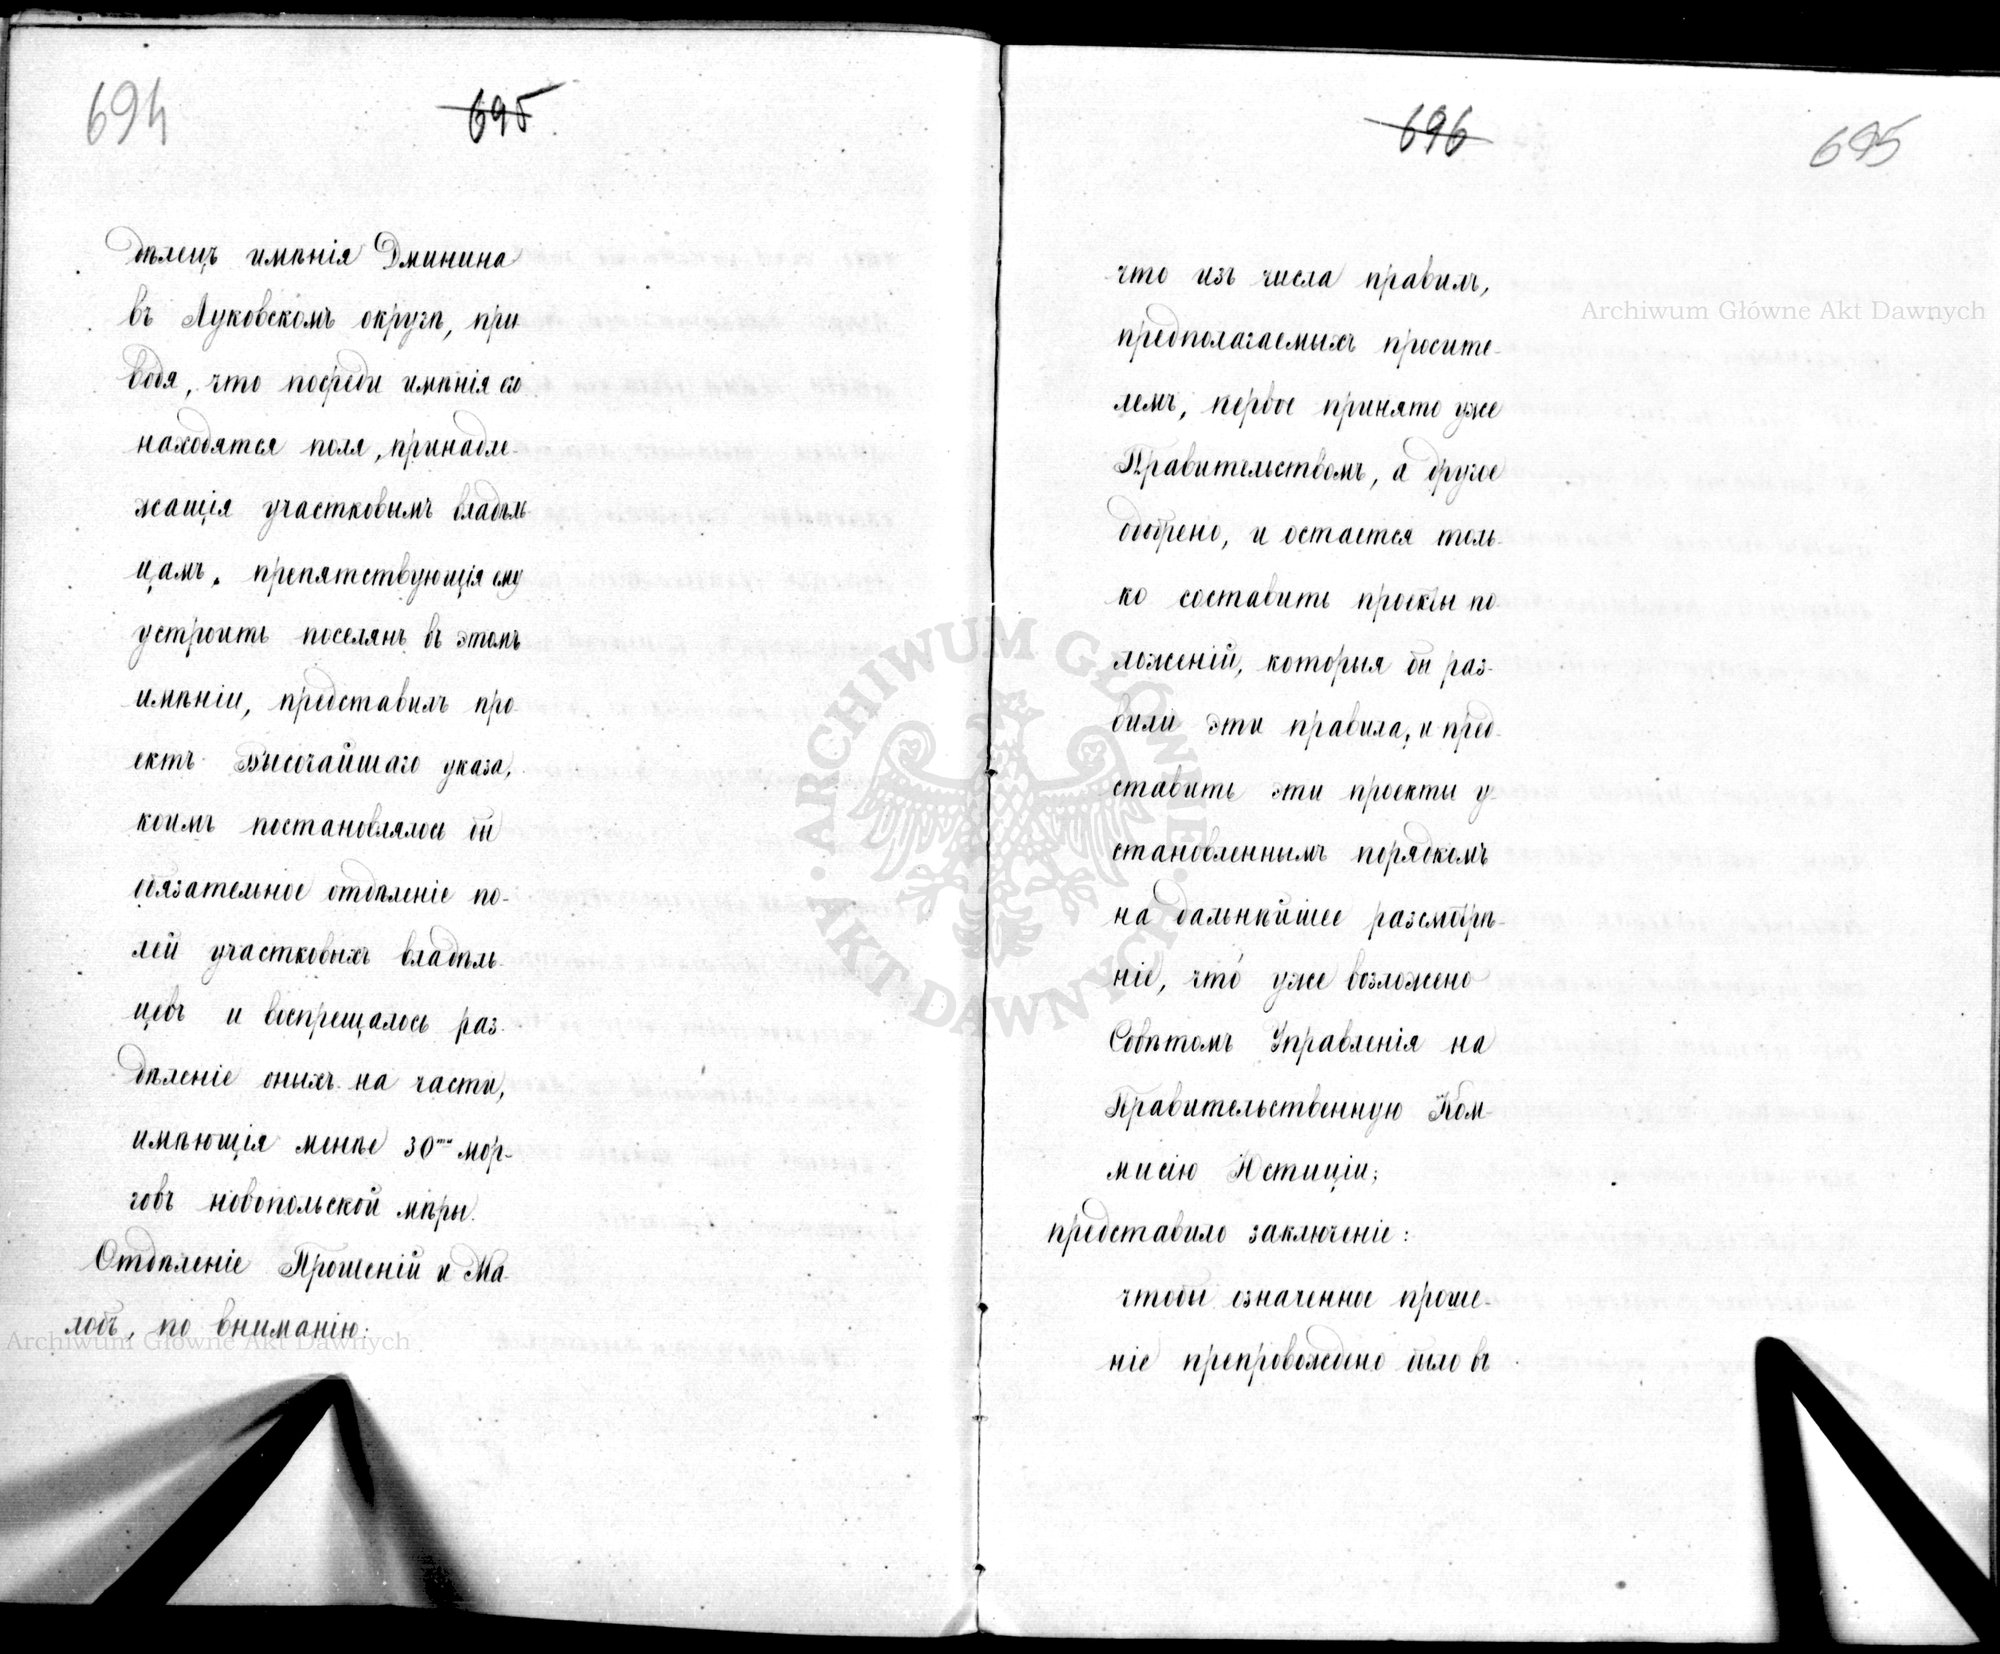 694
695
дѣлецъ имѣнія Дминина
въ Луковскомъ округѣ, при
водя, что посреди имѣнія его
находятся поля, принадле-
жащія участковымъ владѣль
цамъ, препятствующія ему
устроить поселянъ въ этомъ
имѣніи, представилъ про-
ектъ Высочайшаго указа,
коимъ постановлялось бы
обязательное отдѣленіе по-
лей участковыхъ владѣль-
цевъ и воспрещалось раз-
дѣленіе оныхъ на части,
имѣющія менѣе 30ти мор-
говъ новопольской мѣры.
Отдѣленіе Прошеній и Жа-
лобъ, по вниманію:
Archiwum Główne Akt Dawnych
696
695
что изъ числа правилъ,
Archiwum Główne Akt Dawnych
предполагаемыхъ просите-
лемъ, первое принято уже
Правительствомъ, а другое
одобрено, и остается толь-
ко составить проекты по
ложеній, которыя бы раз-
вили эти правила, и пред-
ставить эти проекты у-
становленнымъ порядкомъ
на дальнѣйшее разсмотрѣ-
ніе, что́ уже возложено
Совѣтомъ Управленія на
Правительственную Ком-
мисію Юстиціи;
представило заключеніе:
чтобы означенное проше-
ніе препровождено было въ
ARCHIWUM GŁÓWNE
AKT DAWNYCH